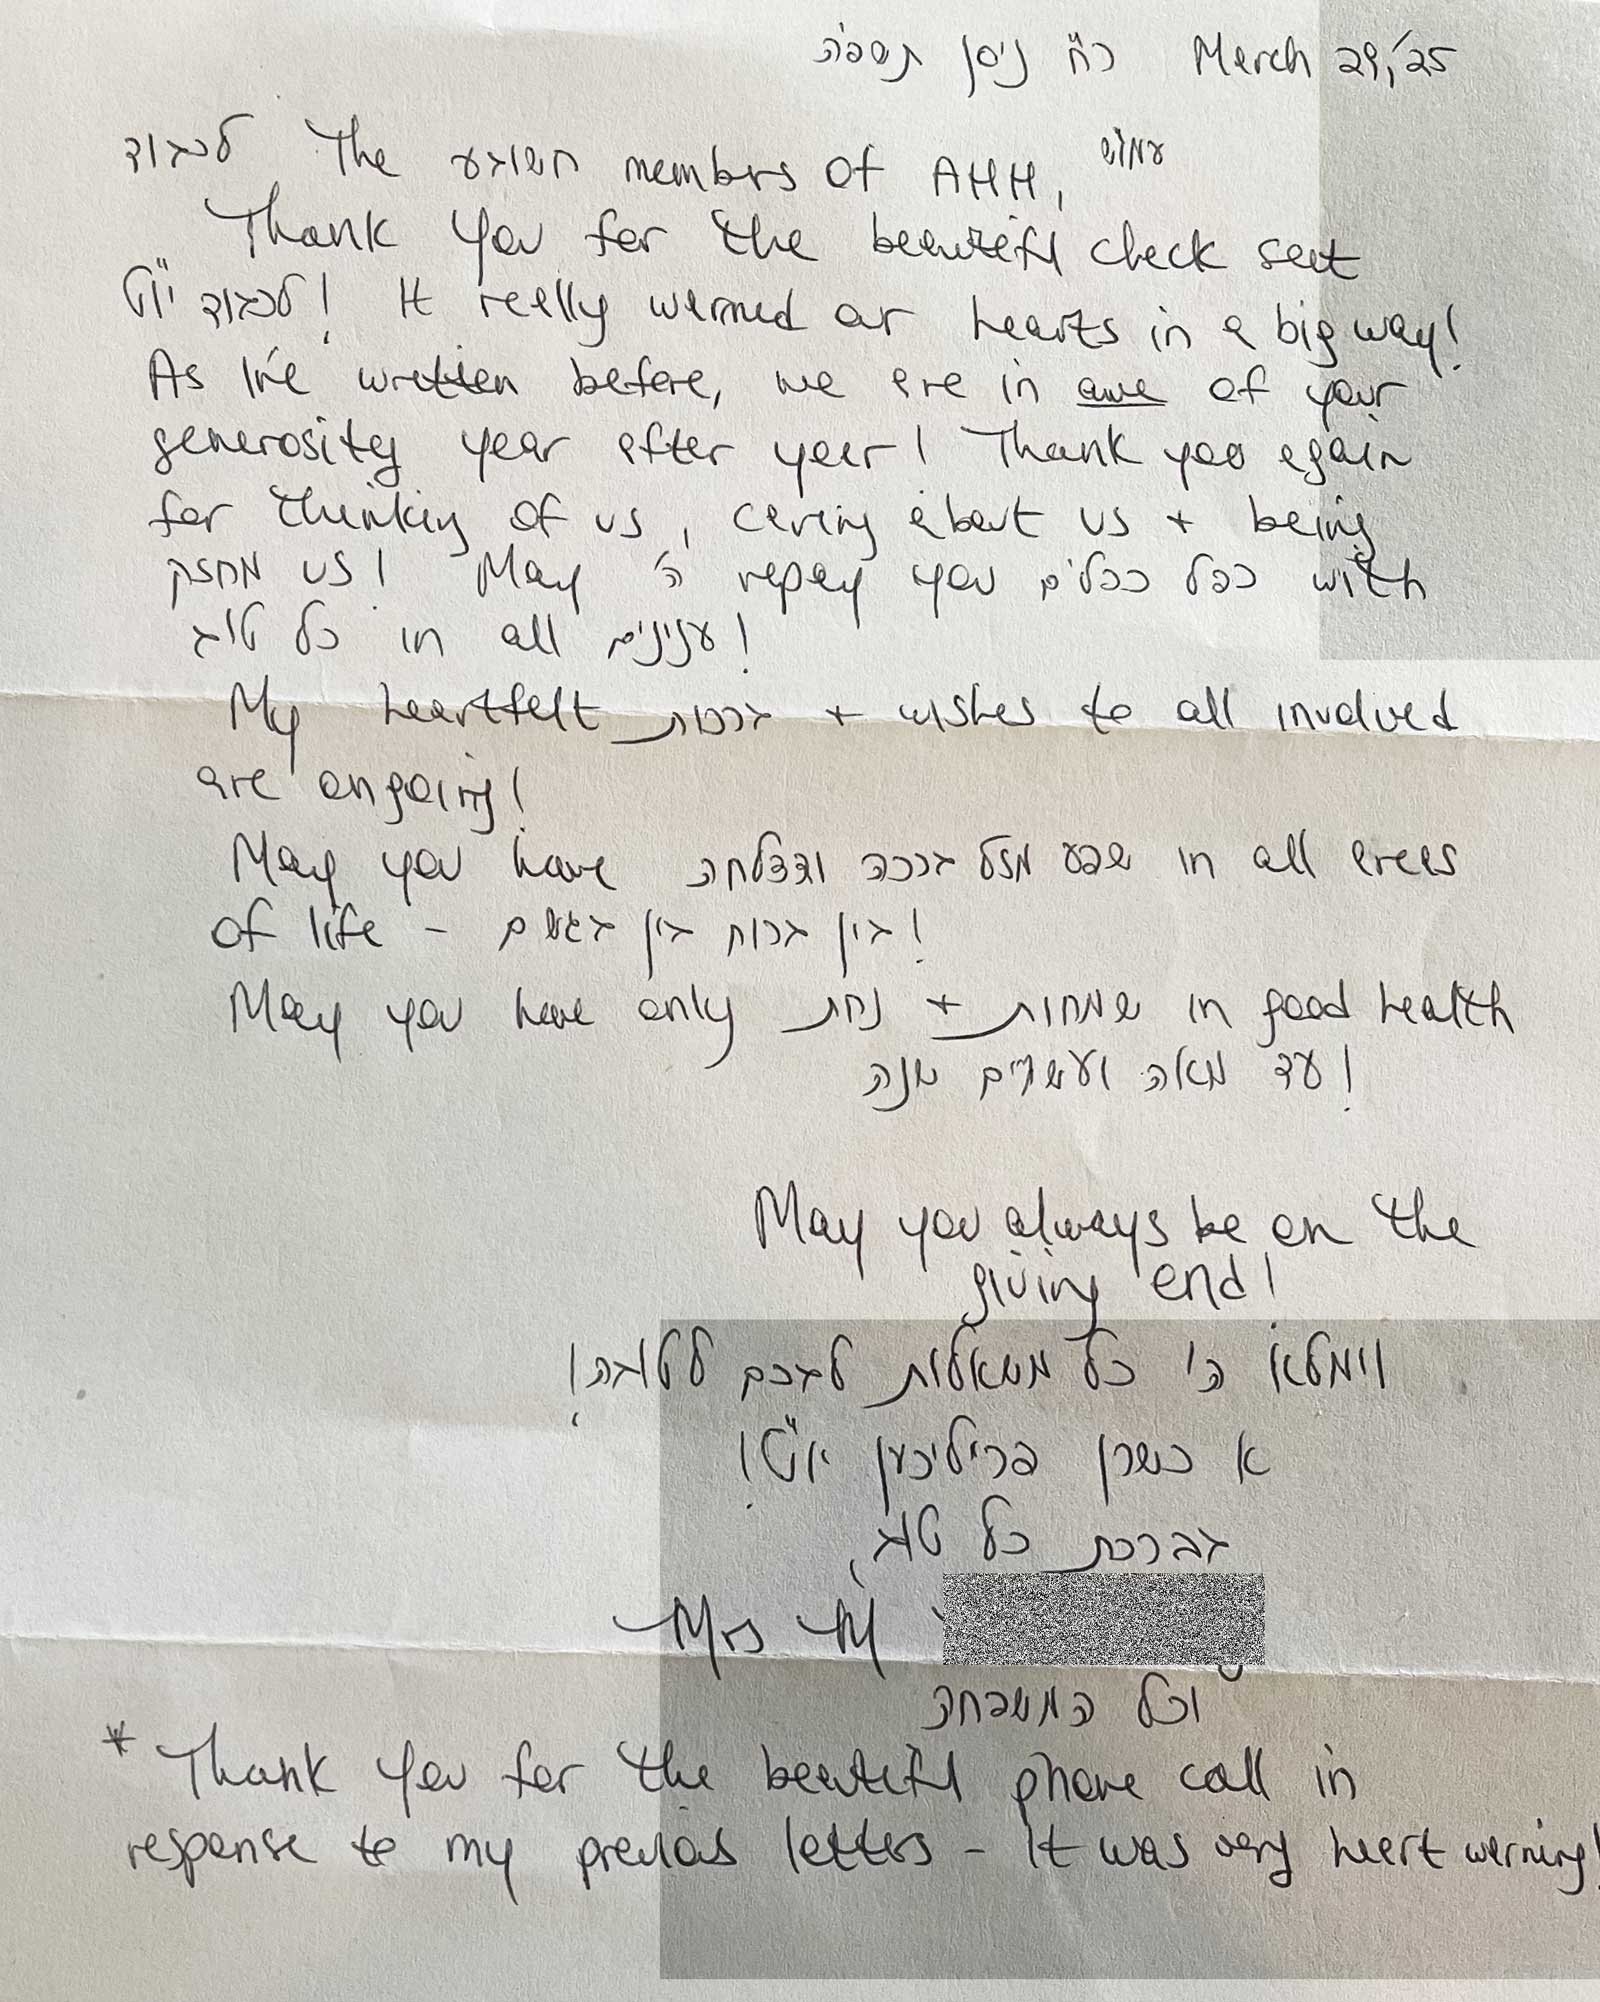 March 29,'25 כ"ח ניסן תשפ"ה
לכבוד The חשובע members of AHH, עמו"ש
Thank you for the beautiful check sent
לכבוד יו"ט! It really warmed our hearts in a big way!
As I've written before, we are in awe of your
generosity year after year! Thank you again
for thinking of us, caring about us + being
מחזק us! May ה' repay you כפל כפלים with
כל טוב in all ענינים!
My heartfelt ברכות + wishes to all involved
are ongoing!
May you have שפע מזל ברכה והצלחה in all areas
of life - בין ברוח בין בגשם!
May you have only נחת + שמחות in good health
עד מאה ועשרים שנה!
May you always be on the
giving end!
וימלא ה' כל משאלות לבכם לטובה!
א כשרן פריליכען יו"ט!
בברכת כל טוב,
Mrs M
וכל המשפחה
* Thank you for the beautiful phone call in
response to my previous letters - It was very heart warming!